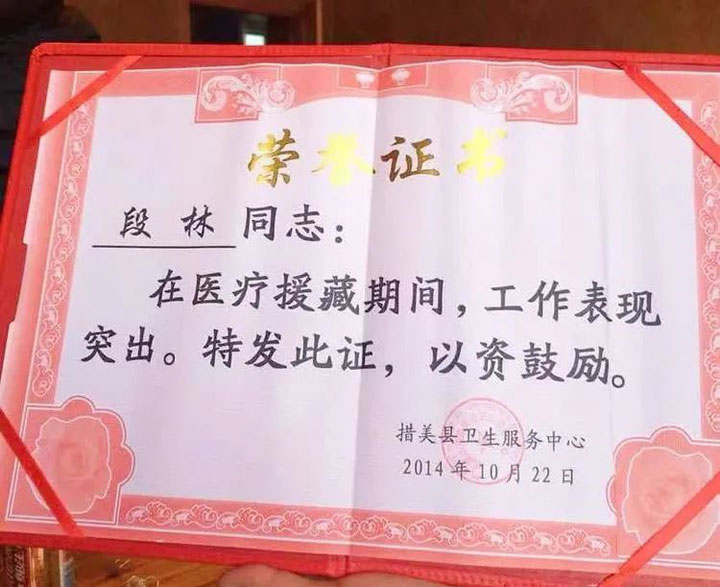 荣誉证书
段林同志：
在医疗援藏期间，工作表现
突出。特发此证，以资鼓励。
措美县卫生服务中心
2014年10月22日